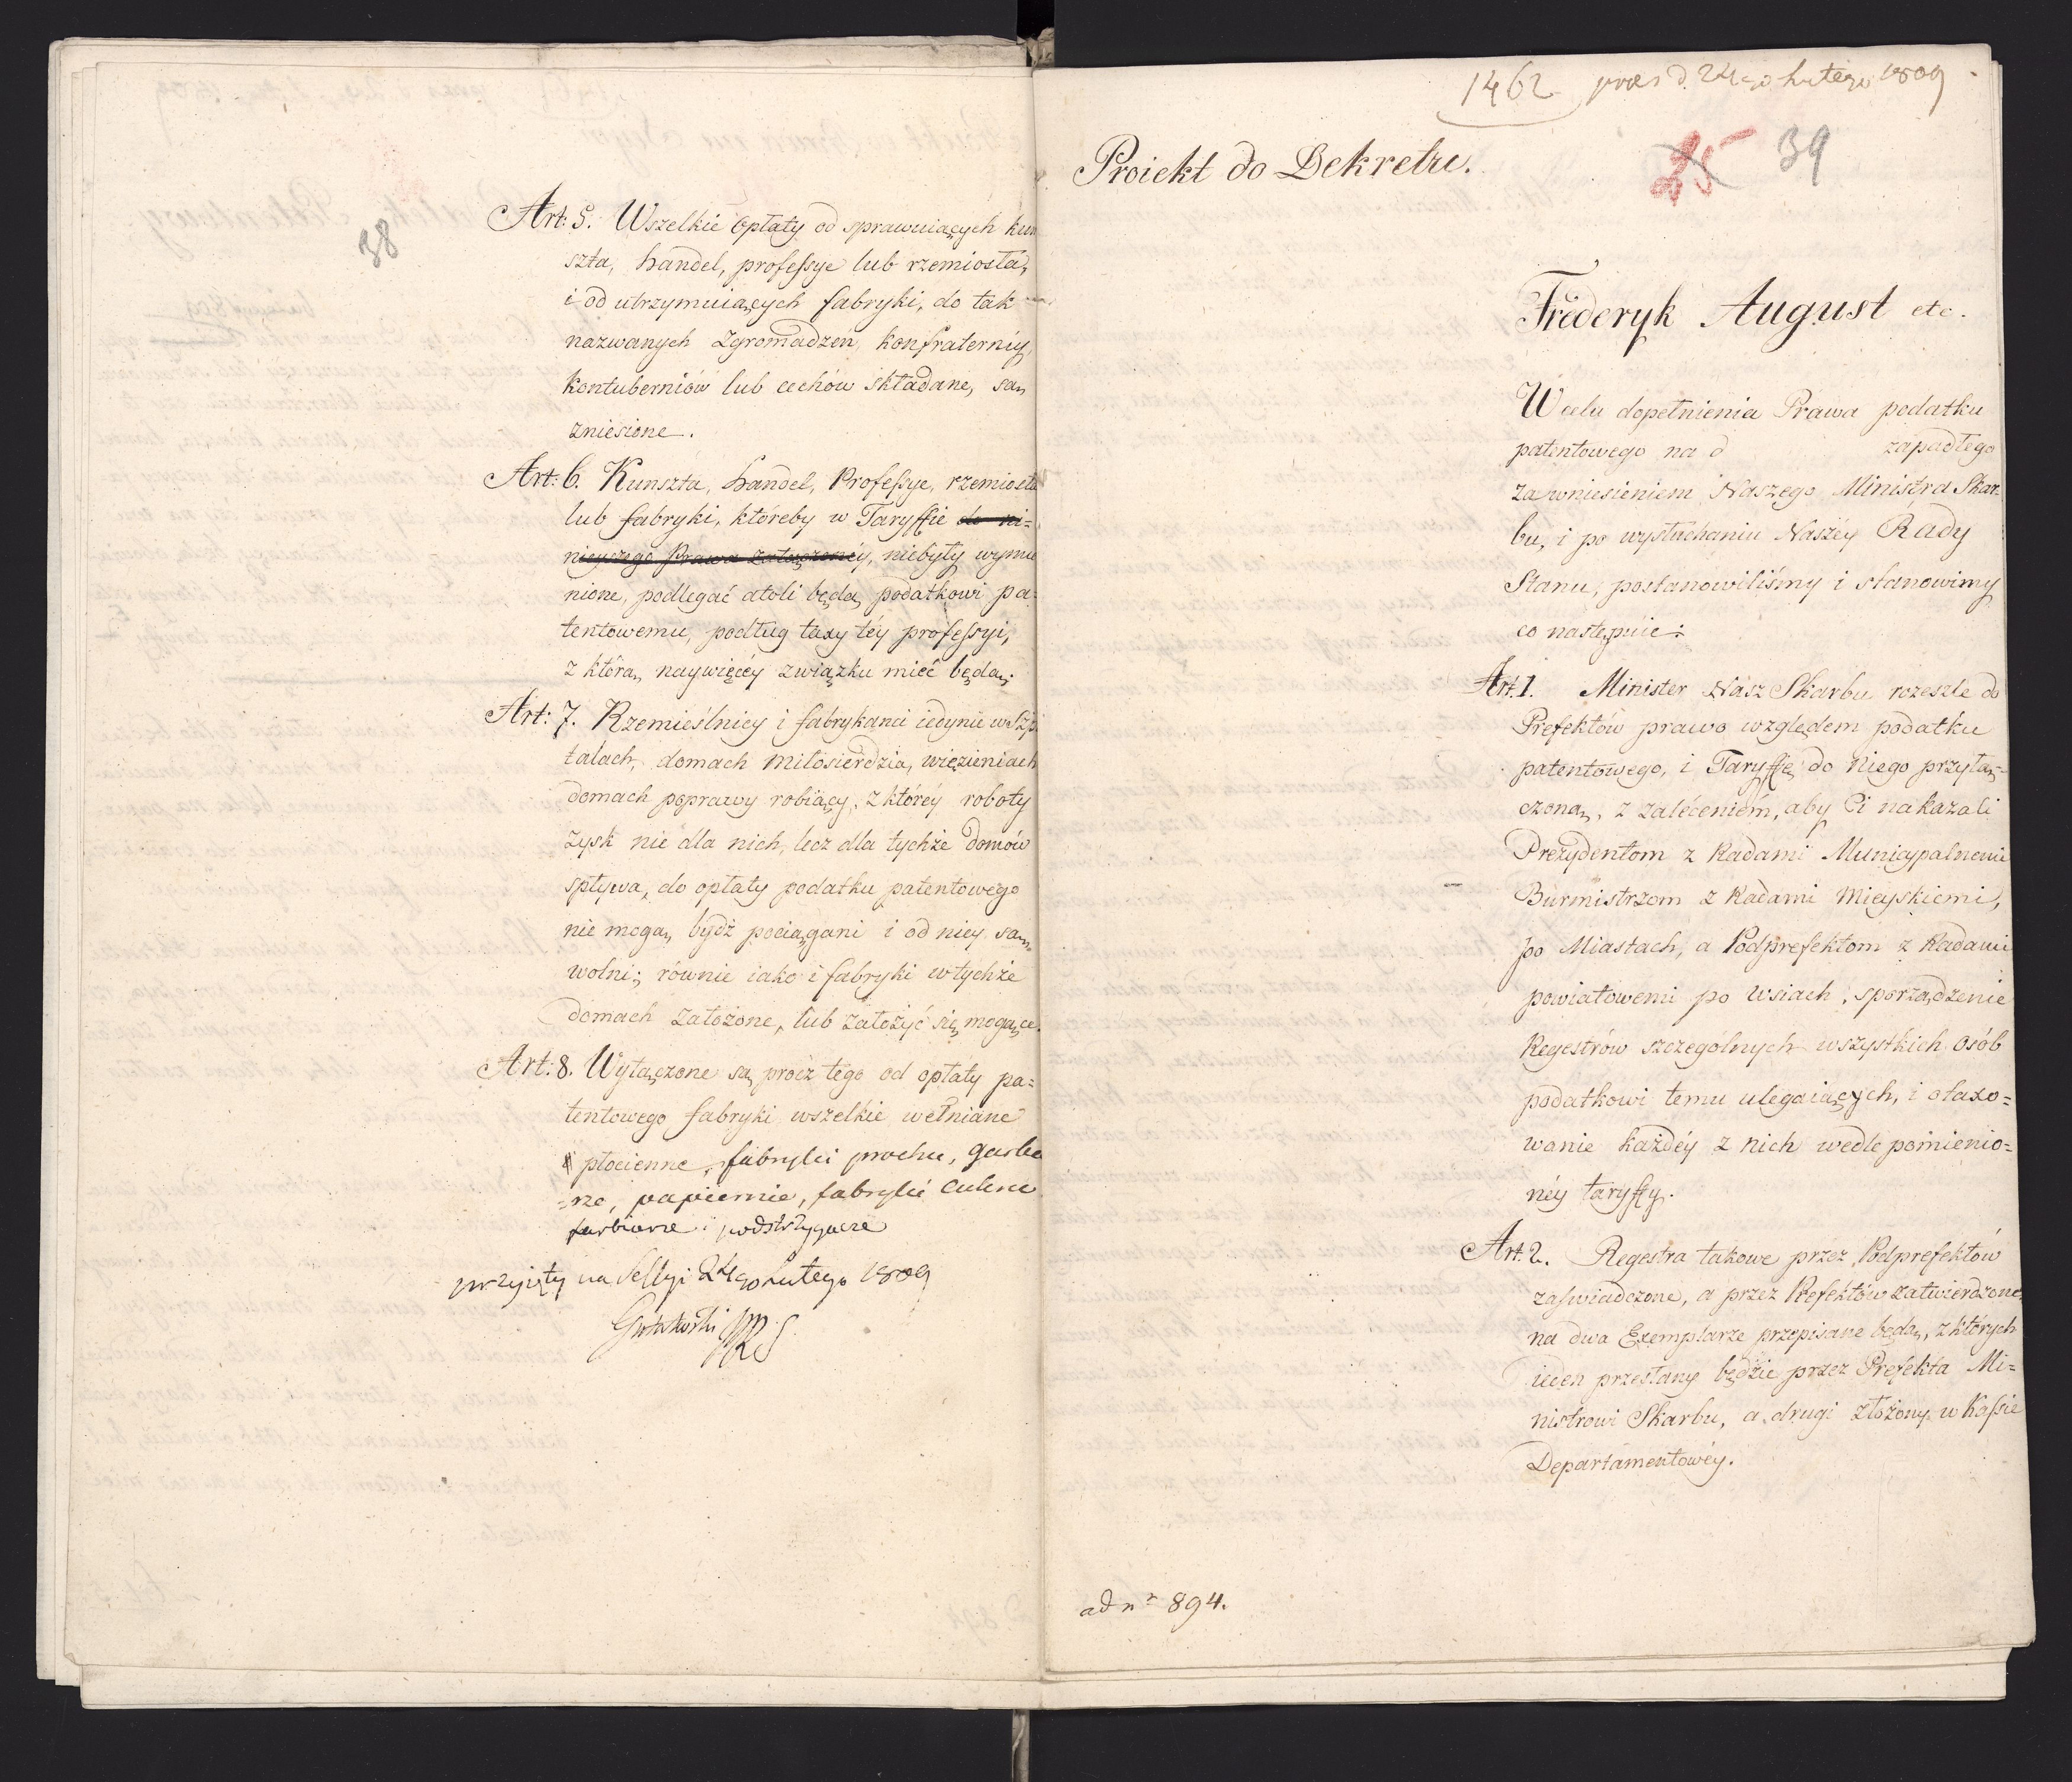 38
Art: 5. Wszelkie opłaty od sprawuiących kun
szta, handel, professye lub rzemiosła,
i od utrzymuiących fabryki, do tak
nazwanych Zgromadzeń, konfraterniy,
kontuberniów lub cechów składane, są
zniesione.
Art: 6. Kunszta, handel, Professye, rzemiosła
lub fabryki, któreby w Taryffie do ni=
nieyszego Prawa załączonéy, niebyły wymie
nione, podlegać atoli będą podatkowi pa=
tentowemu, podług taxy téy professyi,
z którą naywięcéy związku mieć będą.
Art: 7. Rzemieślnicy i fabrykanci iedynie w Szpi
talach, domach miłosierdzia, więzieniach
domach poprawy robiący, z któréy roboty
zysk nie dla nich, lecz dla tychże domów
spływa, do opłaty podatku patentowego
nie mogą bydź pociągani i od niey są
wolni; równie iako i fabryki w tychże
domach założone, lub założyć się mogące.
Art: 8. Wyłączone są procz tego od opłaty pa=
tentowego fabryki wszelkie wełniane
i płocienne, fabryki prochu, garba
=rze, papiernie, fabryki cukru
farbiarze i podstrzygacze
przyięty na Sessyi 24go Lutego 1809
1462 praes d. 24go Lutego 1809
Proiekt do Dekretu.
25 39
Frideryk August etc.
W celu dopełnienia Prawa podatku
patentowego na d zapadłego
za wniesieniem Naszego Ministra Skar=
bu, i po wysłuchaniu Naszéy Rady
Stanu, postanowiliśmy i stanowimy
co następuie:
Art. 1. Minister Nasz Skarbu rozeszle do
Prefektów prawo względem podatku
patentowego, i Taryffę do niego przyłą=
czoną, z zaleceniem, aby Ci nakazali
Prezydentom z Radami Municypalnemi
Burmistrzom z Radami Mieyskiemi,
po Miastach, a Podprefektom z Radami
powiatowemi po Wsiach, sporządzenie
Regestrów szczególnych wszystkich osób
podatkowi temu ulegaiących, i otaxo=
wanie każdéy z nich wedle pomienio=
néy taryffy.
Art. 2. Regestra takowe przez Podprefektów
zaświadczone, a przez Prefektów zatwierdzone,
na dwa Exemplarze przepisane będą, z których
ieden przesłany będzie przez Prefekta Mi=
nistrowi Skarbu, a drugi złożony w Kassie
Departamentowéy.
ad nr 894.